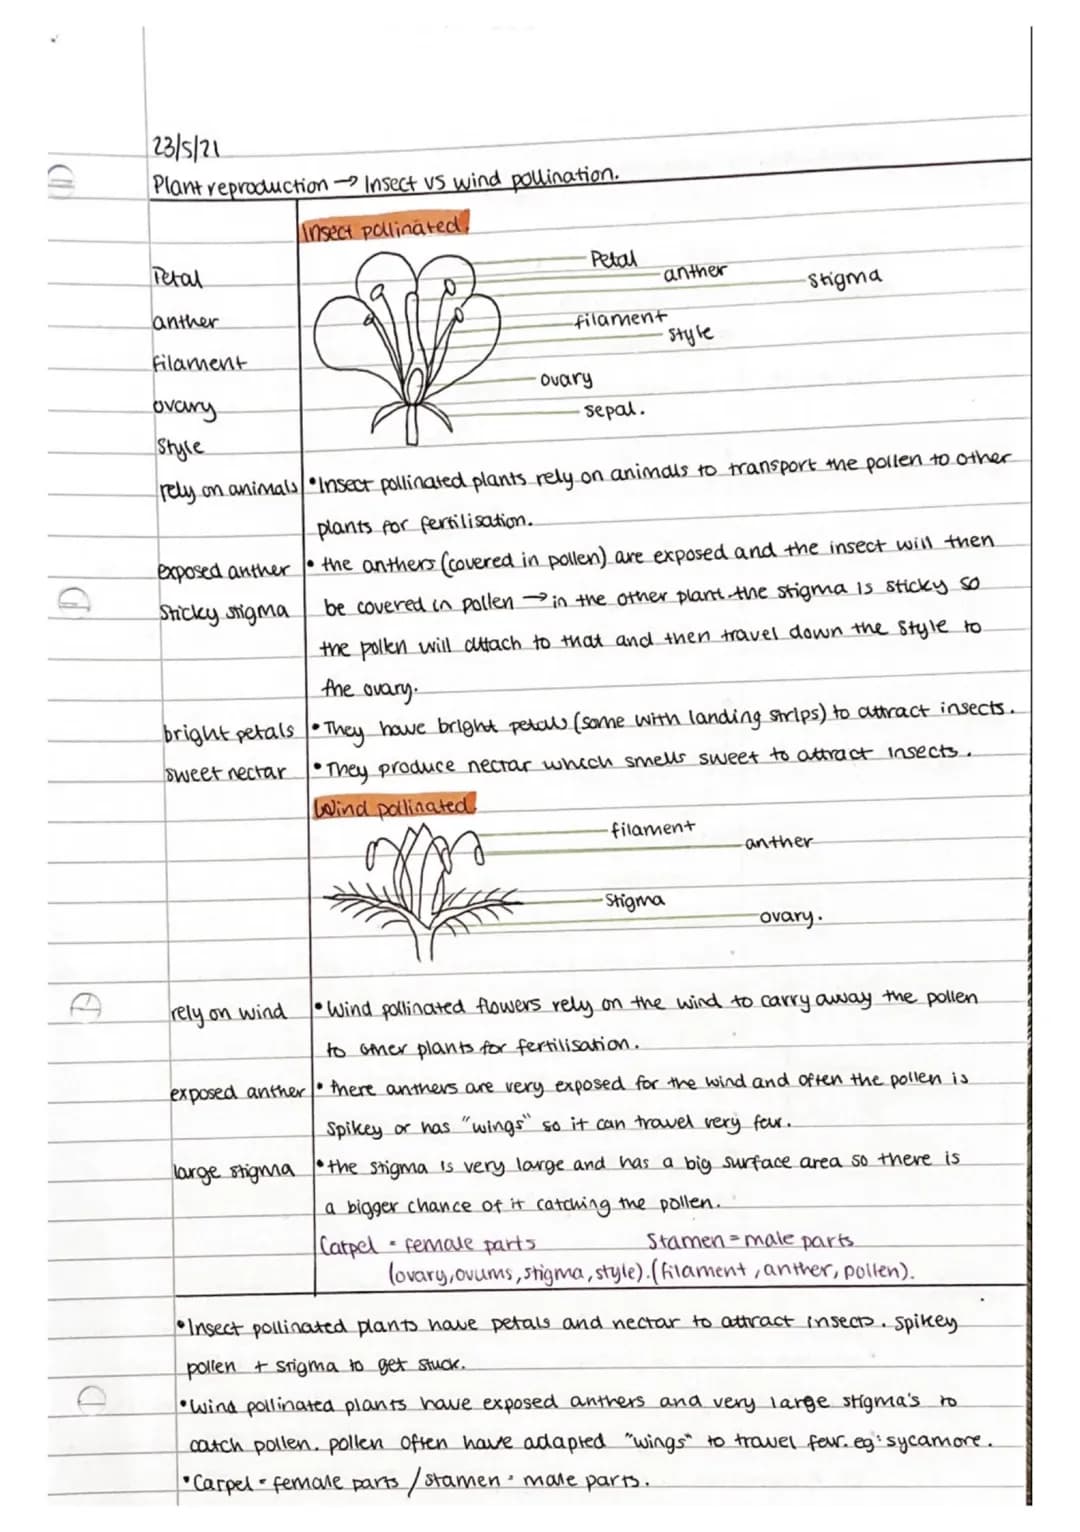 23/5/21
Plant reproduction → Insect vs wind pollination.
Insect pollinated.
Petal
anther
filament
ovary
Style
Petal
anther
Stigma
filament
Style
ovary
sepal.
rely on animals •Insect pollinated plants rely on animals to transport the pollen to other
plants for fertilisation.
exposed anther • the anthers (covered in pollen) are exposed and the insect will then
Sticky stigma be covered in pollen → in the other plant the stigma is sticky so
the pollen will attach to that and then travel down the style to
the ovary.
bright petals •They have bright petals (some with landing strips) to attract insects.
sweet nectar •They produce nectar which smells sweet to attract insects.
Wind pollinated.
filament
anther
Stigma
ovary.
rely on wind •Wind pollinated flowers rely on the wind to carry away the pollen
to other plants for fertilisation.
exposed anther • there anthers are very exposed for the wind and often the pollen is
Spikey or has "wings" so it can travel very far.
large stigma •the stigma is very large and has a big surface area so there is
a bigger chance of it catching the pollen.
Catpel = female parts Stamen = male parts
(ovary, ovums, stigma, style). (filament, anther, pollen).
•Insect pollinated plants have petals and nectar to attract insects. Spikey
pollen + stigma to get stuck.
•Wind pollinated plants have exposed anthers and very large stigma's to
catch pollen. pollen often have adapted "wings" to travel far. eg: sycamore.
•Carpel = female parts / stamen = male parts.